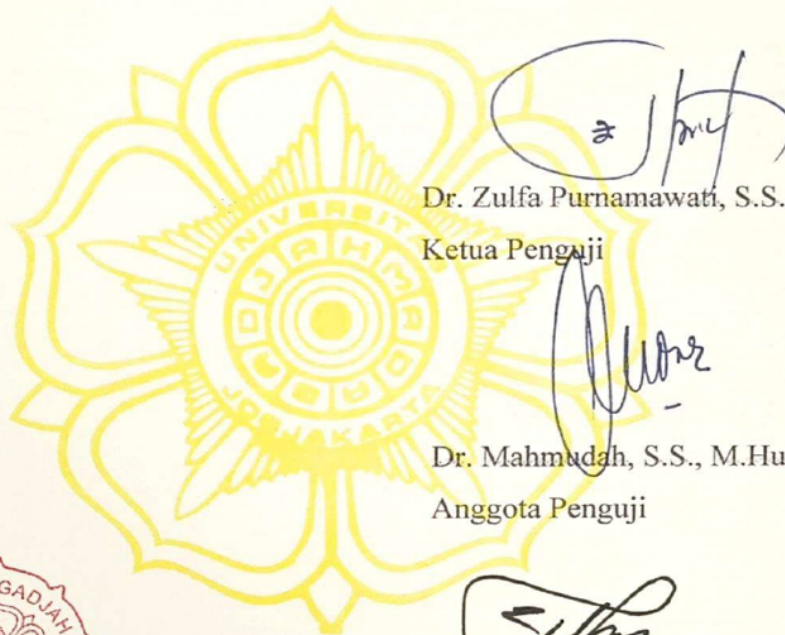 UNIVERSITAS
GADJAH MADA
JOGJAKARTA
Dr. Zulfa Purnamawati, S.S.
Ketua Penguji
Dr. Mahmudah, S.S., M.Hu
Anggota Penguji
GADJAH